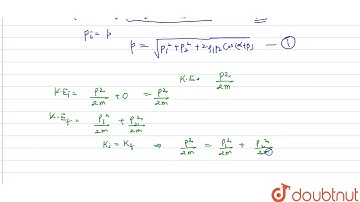 Pi = p
p = √p₁² + p₂² + 2p₁p₂ Cos(α+β) — ①
K·E = p²/2m
K·Ei = p²/2m + 0 = p²/2m
K·Ef = p₁²/2m + p₂²/2m
Ki = Kf ⇒ p²/2m = p₁²/2m + p₂²/2m
doubtnut